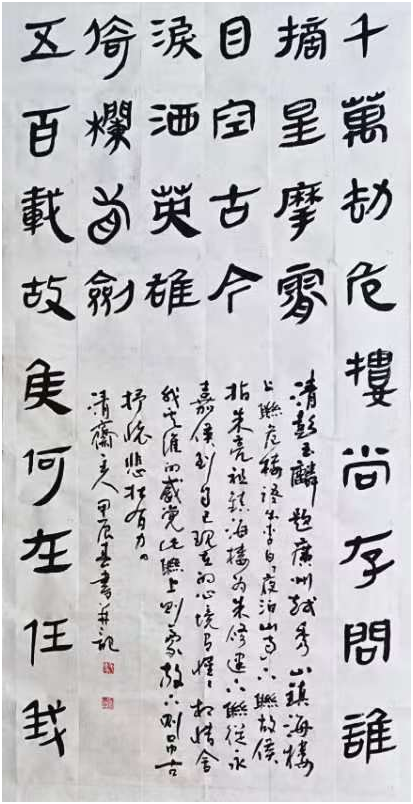 千萬劫危樓尚存問誰
摘星摩霄
目空古今
五百載故侯何在任我
倚欄看劍
淚洒英雄
清彭玉麟題廣州越秀山鎮海樓
上聯危樓語出李白夜泊山寺下聯故侯
指朱亮祖鎮海樓為朱修建下聯從永
嘉侯到自己現在的心境与惺惺相惜舍
我其谁的感覺此聯上則豪放下則吊古
抒懷悲壯有力
清齋主人甲辰春書并記